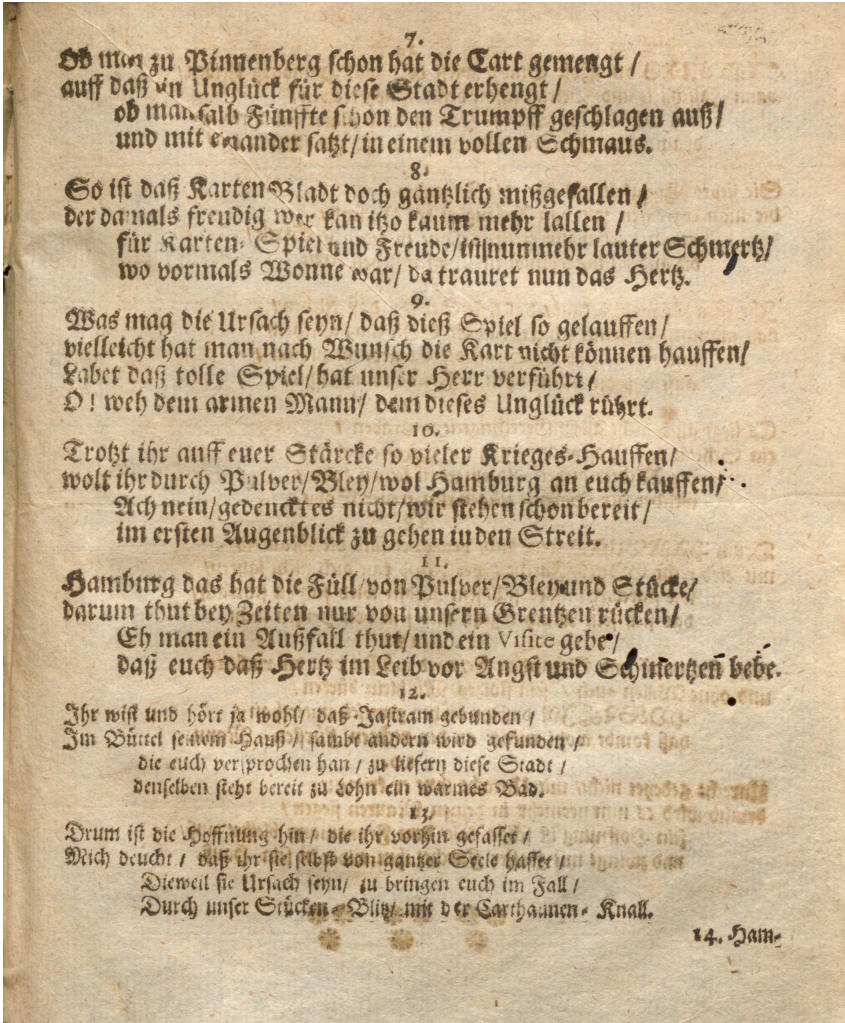 7.
Ob man zu Pinnenberg schon hat die Cart gemengt /
auff daß ein Unglück für diese Stadt erhengt /
ob man salb Fünffte schon den Trumpff geschlagen auß /
und mit einander satzt / in einem vollen Schmaus.
8.
So ist daß Karten Bladt doch gäntzlich mißgefallen /
der damals freudig war kan itzo kaum mehr lallen /
für Karten- Spiel und Freude / ist nunmehr lauter Schmertz /
wo vormals Wonne war / da trauret nun das Hertz.
9.
Was mag die Ursach seyn / daß dieß Spiel so gelauffen /
vielleicht hat man nach Wunsch die Kart nicht können hauffen /
Labet daß tolle Spiel / hat unser Herr verführt /
O! weh dem armen Mann / dem dieses Unglück rührt.
10.
Trotzt ihr auff euer Stärcke so vieler Krieges-Hauffen /
wolt ihr durch Pulver / Bley / wol Hamburg an euch kauffen /
Ach nein / gedenckt es nicht / wir stehen schon bereit /
im ersten Augenblick zu gehen in den Streit.
11.
Hamburg das hat die Füll von Pulver / Bley und Stücke /
darum thut bey Zeiten nur von unsern Grentzen rücken /
Eh man ein Außfall thut / und ein Visite gebe /
daß euch daß Hertz im Leib vor Angst und Schmertzen̄ bebe.
12.
Ihr wist und hört ja wohl / daß Jastram gebunden /
Im Büttel seinem Hauß / sambt andern wird gefunden /
die euch versprochen han / zu liefern diese Stadt /
denselben steht bereit zu Lohn ein warmes Bad.
13.
Drum ist die Hoffnung hin / die ihr vorhin gefasset /
Mich deucht / daß ihr sie selbst von gantzer Seele hasset /
Dieweil sie Ursach seyn / zu bringen euch im Fall /
Durch unser Stücken- Blitz / mit der Carthaunen- Knall.
14. Ham-